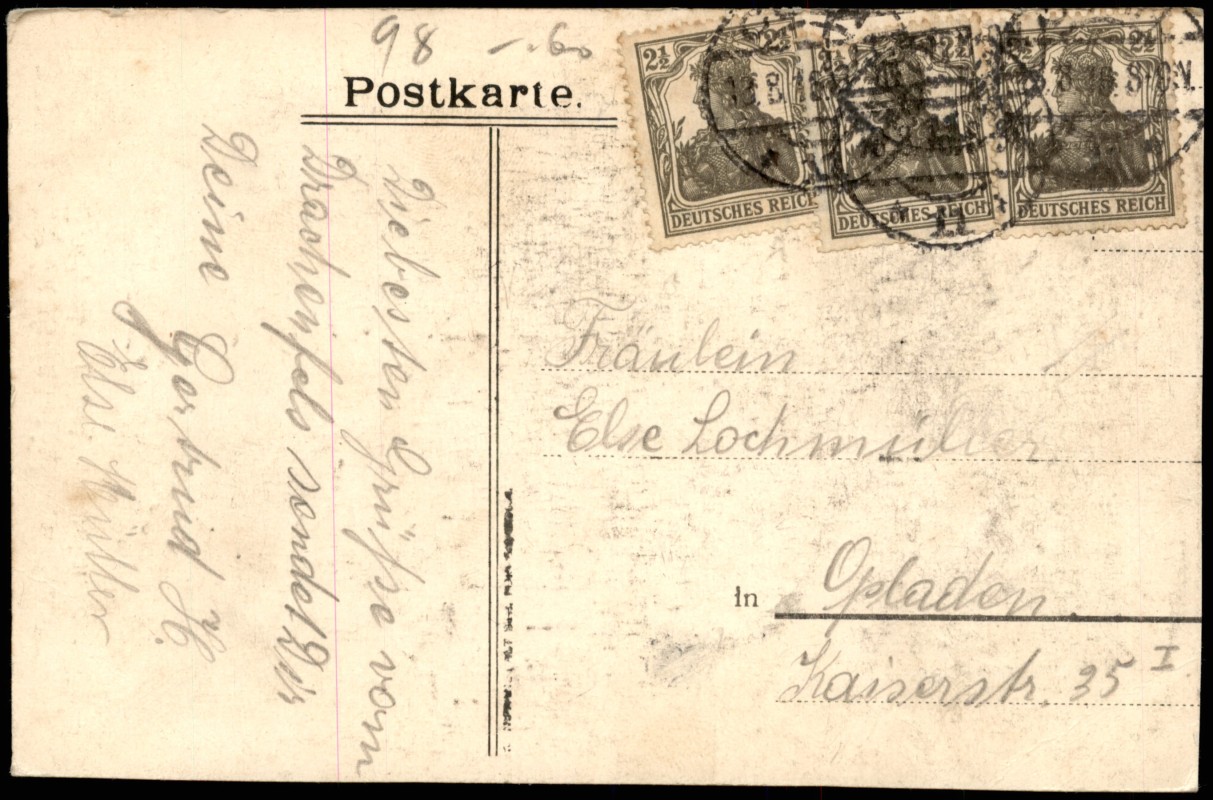 98 -.60
Postkarte.
2½ 2½
DEUTSCHES REICH
2½
DEUTSCHES REICH
2½
DEUTSCHES REICH
8-9N.
Die besten Grüße vom
Drachenfels sendet Dir
Deine Gertrud H.
Else Müller
Fräulein
Else Lochmüller
In Opladen
Kaiserstr. 35 I